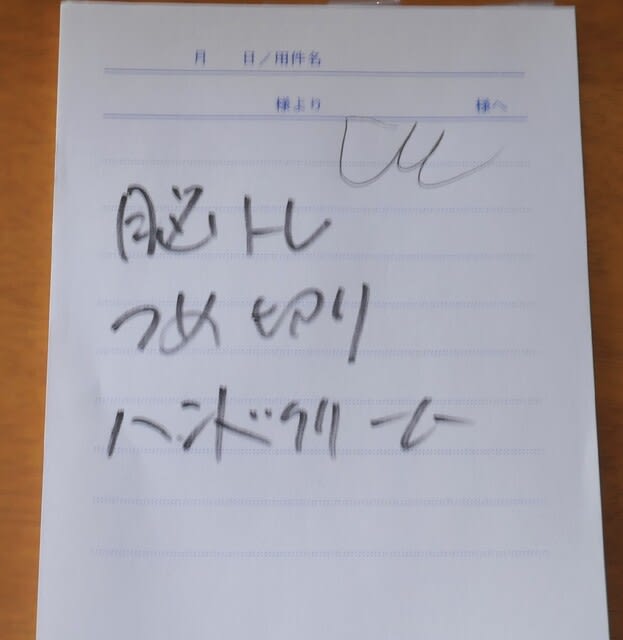 月 日/用件名
様より 様へ
脳トレ
つめ切り
ハンドクリーム